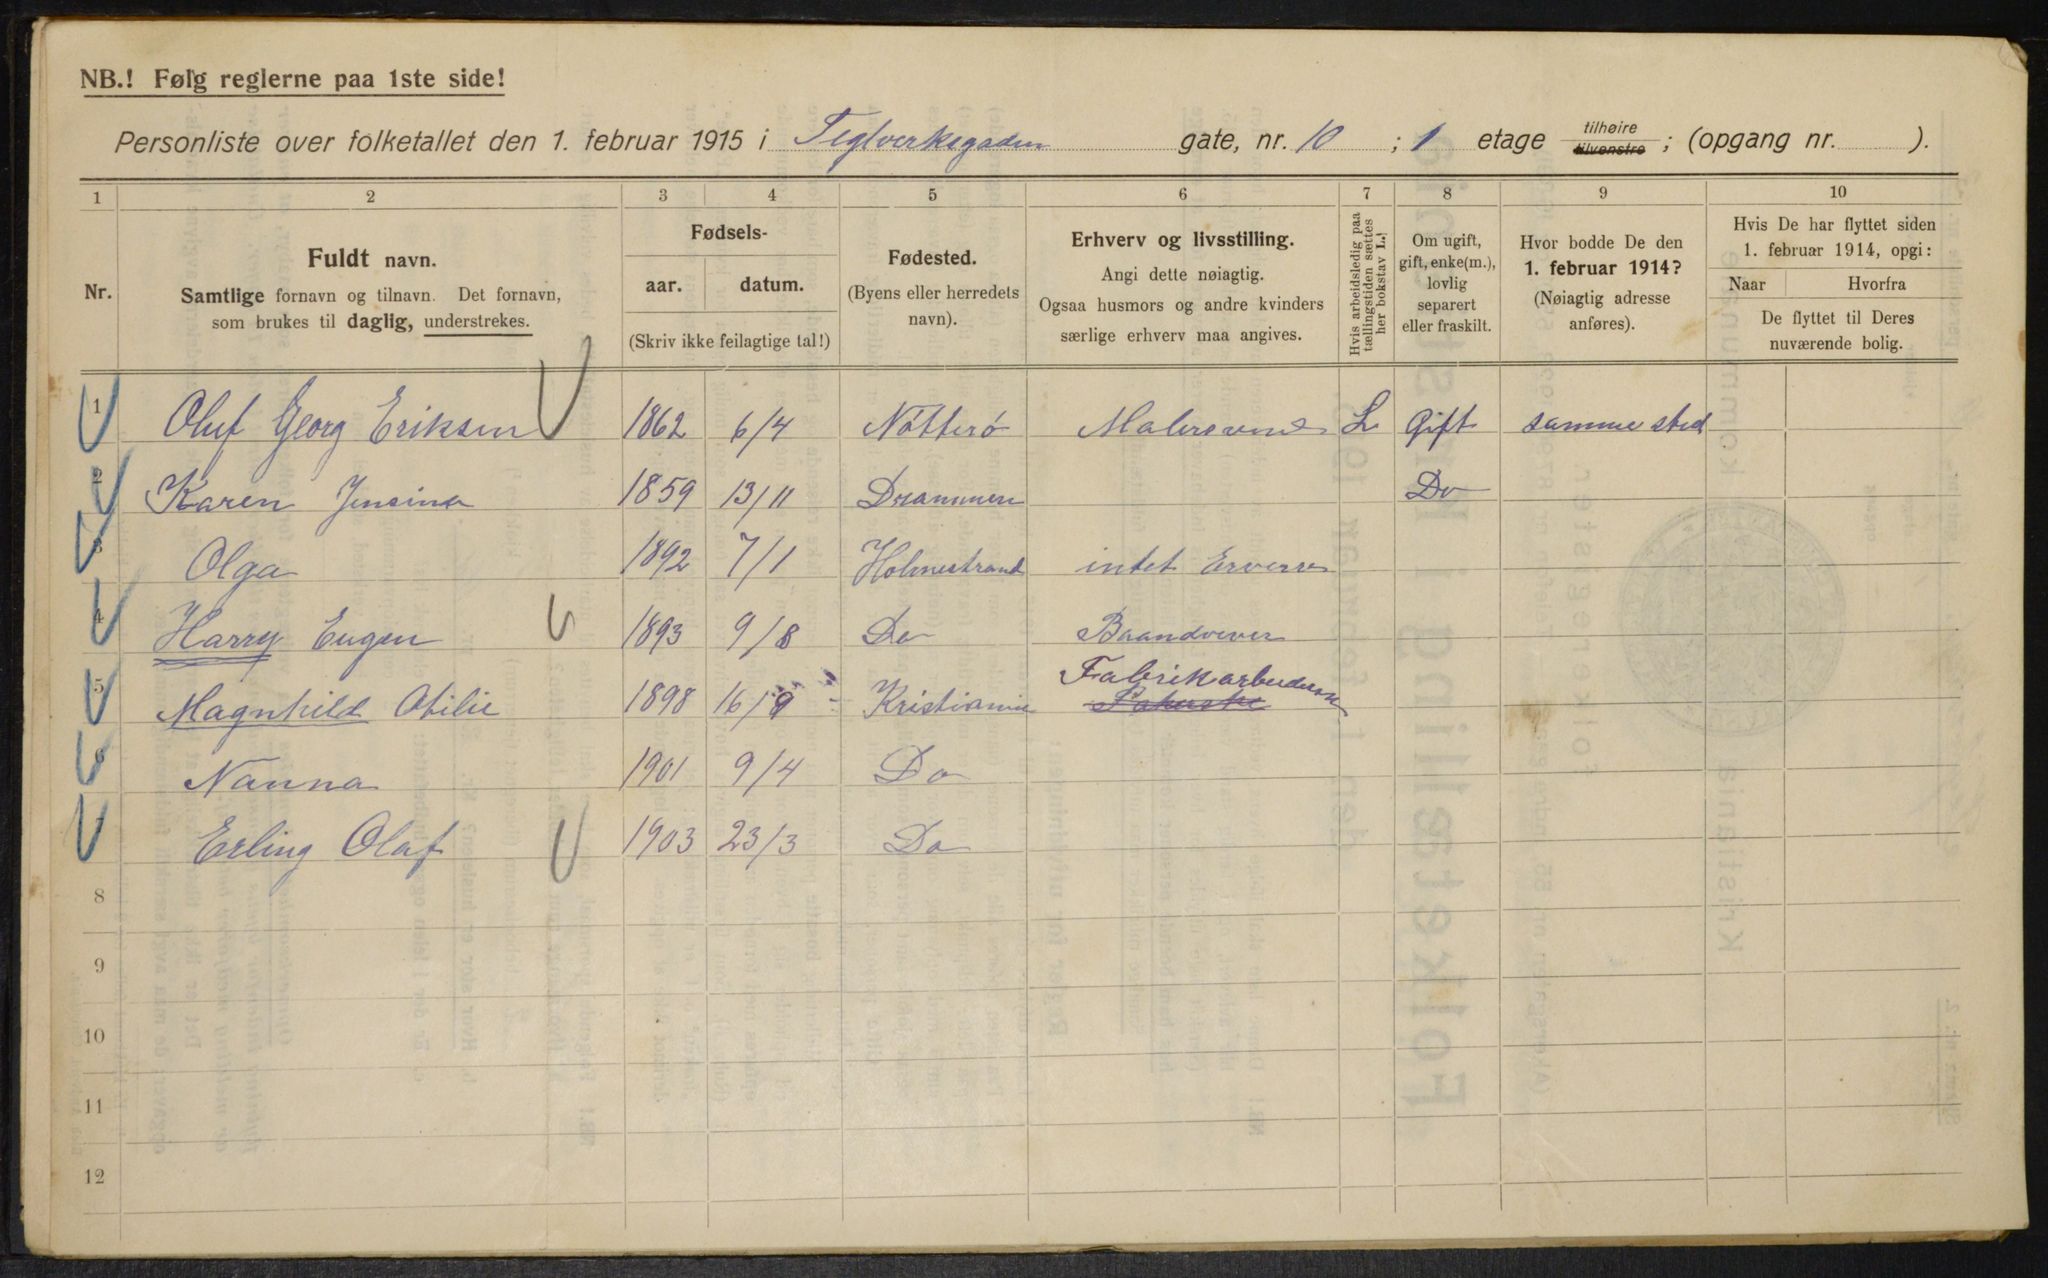 NB.! Følg reglerne paa 1ste side!
Personliste over folketallet den 1. februar 1915 i Teglverksgaden gate, nr. 10 ; 1 etage tilhøire tilvenstre ; (opgang nr. ).
1 2 3 4 5 6 7 8 9 10
Nr.
Fuldt navn.
Samtlige fornavn og tilnavn. Det fornavn,
som brukes til daglig, understrekes.
Fødsels-
aar. datum.
(Skriv ikke feilagtige tal!)
Fødested.
(Byens eller herredets
navn).
Erhverv og livsstilling.
Angi dette nøiagtig.
Ogsaa husmors og andre kvinders
særlige erhverv maa angives.
Hvis arbeidsledig paa
tællingstiden sættes
her bokstav L.
Om ugift,
gift, enke(m.),
lovlig
separert
eller fraskilt.
Hvor bodde De den
1. februar 1914?
(Nøiagtig adresse
anføres).
Hvis De har flyttet siden
1. februar 1914, opgi:
Naar Hvorfra
De flyttet til Deres
nuværende bolig.
1 Oluf Georg Eriksen 1862 6/4 Nötterö Malersvend L Gift samme sted
2 Karen Jensine 1859 13/11 Drammen Do
3 Olga 1892 7/1 Holmestrand intet Erverv
4 Harry Eugen 1893 9/8 Do Baandvever
5 Magnhild Otilie 1898 16/9 Kristiania Fabrikarbeiderske
6 Nanna 1901 9/4 Do
7 Erling Olaf 1903 23/3 Do
8
9
10
11
12